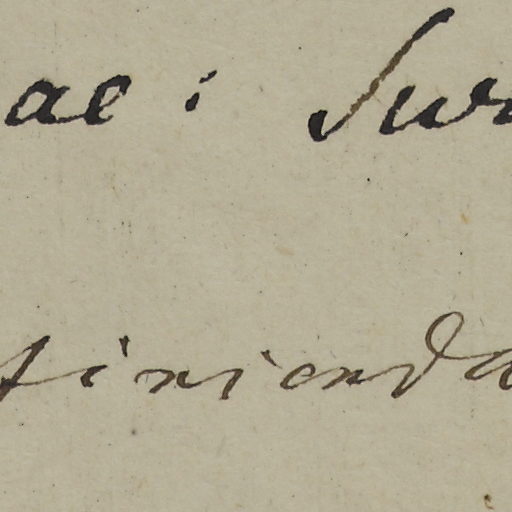 ae: Sur
finienda